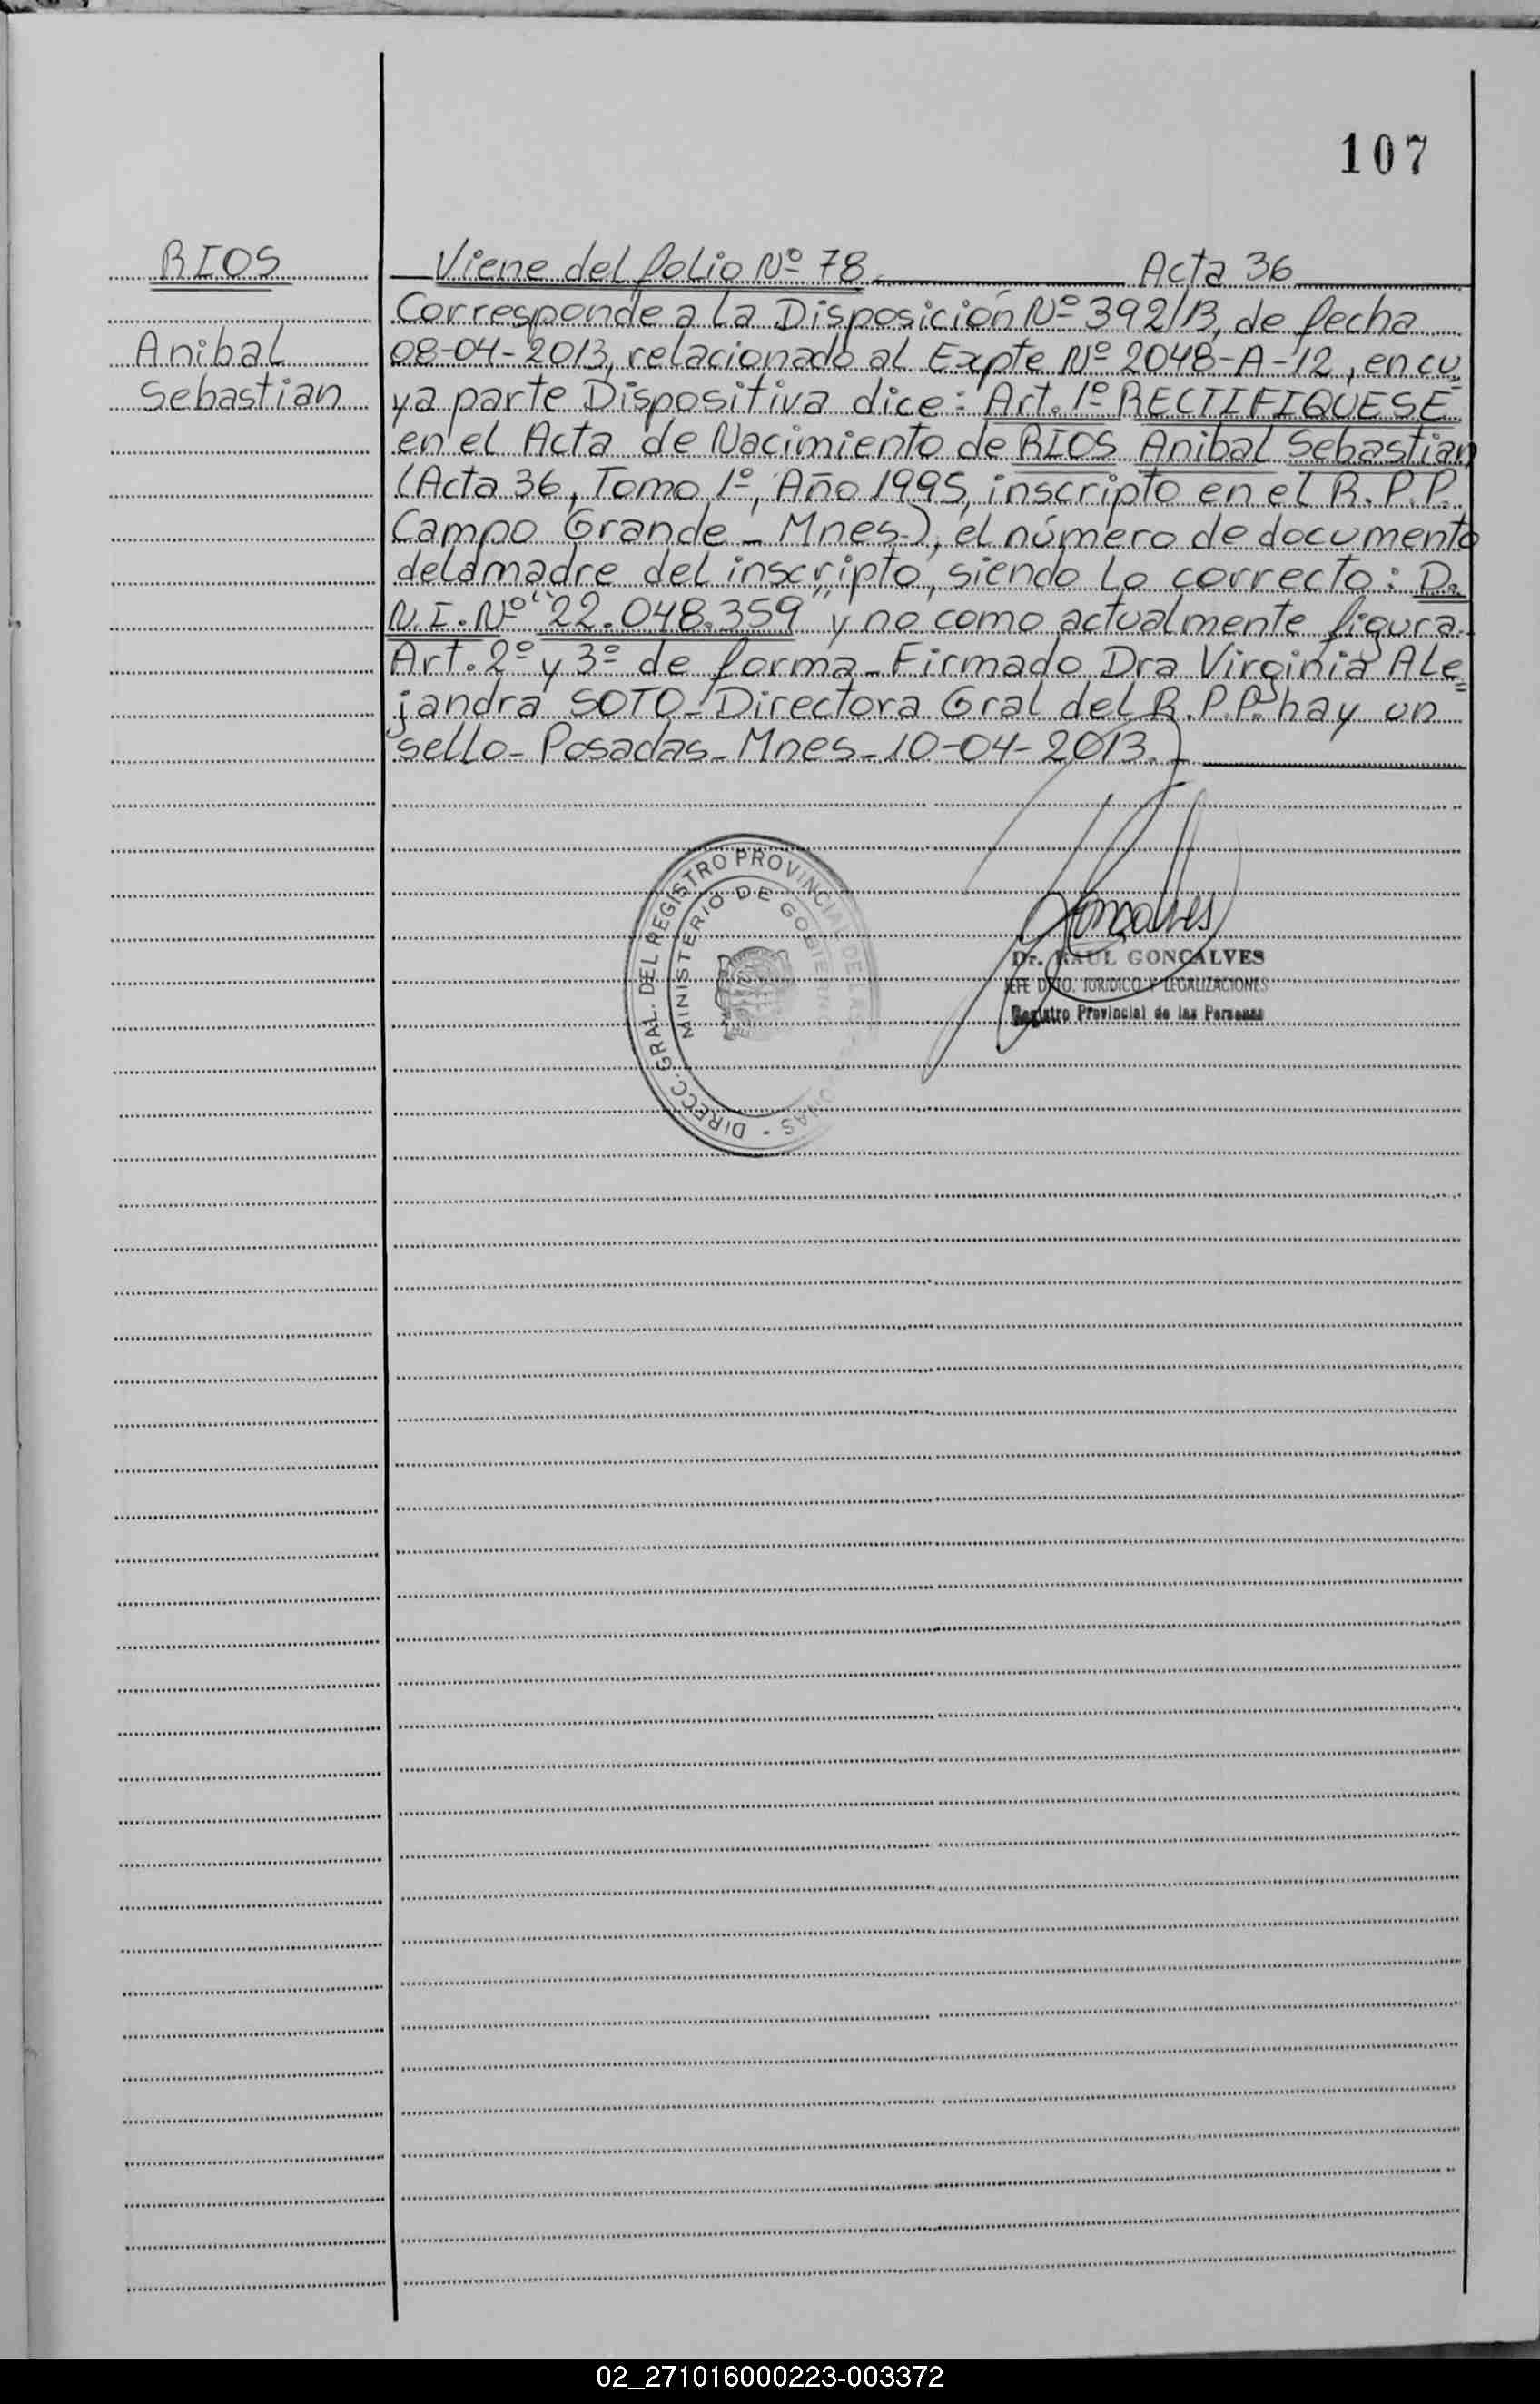 107
RIOS
Anibal
Sebastian
Viene del folio Nº 78 Acta 36
Corresponde a la Disposición Nº 392/13, de fecha
08-04-2013, relacionado al Expte Nº 2048-A-12, en cu
ya parte Dispositiva dice: Art. 1º RECTIFIQUESE
en el Acta de Nacimiento de RIOS Anibal Sebastian
(Acta 36, Tomo 1º, Año 1995, inscripto en el R.P.P.
Campo Grande - Mnes.), el número de documento
de la madre del inscripto, siendo lo correcto: D.
N.I. Nº "22.048.359" y no como actualmente figura.
Art. 2º y 3º de forma - Firmado Dra Virginia Ale=
jandra SOTO - Directora Gral del R.P.P. hay un
sello - Posadas - Mnes - 10-04-2013.)
DIRECC. GRAL. DEL REGISTRO PROVINCIAL DE
MINISTERIO DE GOBIERNO
Dr. RAUL GONÇALVES
JEFE DPTO. JURIDICO Y LEGALIZACIONES
Registro Provincial de las Personas
02_271016000223-003372